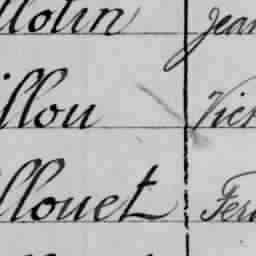 llotin Jean
illou Vict
llouet Fer